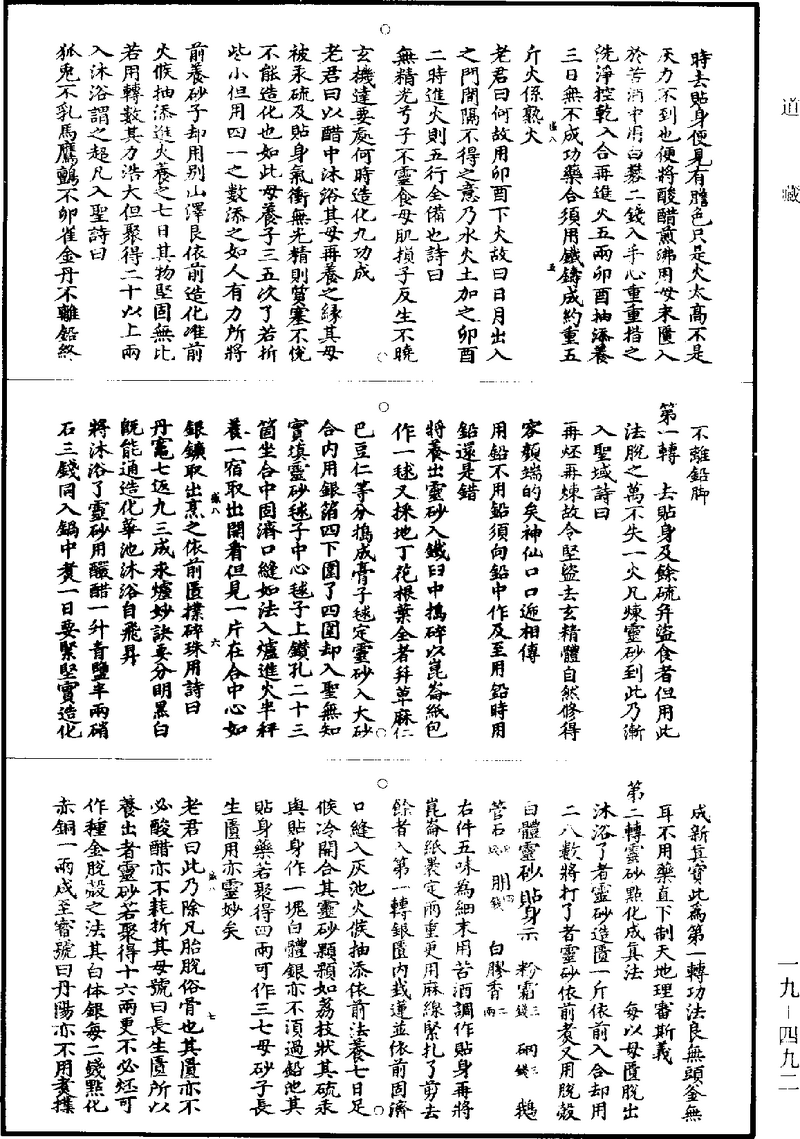 道藏
時去貼身便見有贍色只是火太高不是
灰力不到也便將酸醋煎沸用母末匱入
於苦酒中用白礬二錢入手心重重揩之
洗淨控乾入合再進火五兩卯酉抽添養
三日無不成功藥合須用鐵鑄成約重五
斤火係熟火
老君曰何故用卯酉下火故曰日月出入
之門間隔不得之意乃水火土加之卯酉
二時進火則五行全備也詩曰
無精光芍子不靈食母肌損子反生不曉
玄機達要處何時造化九功成
老君曰以醋中沐浴其母再養之緣其母
被汞硫及貼身氣衝無光精則質塞不悅
不能造化也如此母養子三五次了若折
些小但用四一之數添之如人有力所將
前養砂子却用別山澤艮依前造化准前
火候抽添進火養之七日其物堅固無比
若用轉數其力浩大但聚得二十以上兩
入沐浴謂之超凡入聖詩曰
狐兎不乳馬鷹鸇不卵雀金丹不離鉛終
不離鉛脚
第一轉 去貼身及餘硫并盜食者但用此
法脫之萬不失一火凡煉靈砂到此乃漸
入聖域詩曰
再烓再煉故令堅盜去玄精體自然修得
容顏端的矣神仙口口遞相傳
用鉛不用鉛須向鉛中作及至用鉛時用
鉛還是錯
將養出靈砂入鐵臼中搗碎以崑崙紙包
作一毬又採地丁花根葉全者并草麻仁
巴豆仁等分搗成膏子毬定靈砂入大砂
合內用銀箔四下圍了四圍却入聖無知
實填靈砂毬子中心毬子上鑽孔二十三
箇坐合中固濟口縫如法入爐進火半秤
養一宿取出開看但見一片在合中心如
銀鑛取出烹之依前匱撲碎珠用詩曰
丹竈七返九三成汞爐妙訣要分明黑白
旣能通造化華池沐浴自飛昇
將沐浴了靈砂用釅醋一升青鹽半兩硝
石三錢同入鍋中煑一日要緊堅實造化
成新真寶此爲第一轉功法良無頭釜無
耳不用藥直下制天地理審斯義
第二轉靈砂點化成真法 每以母匱脫出
沐浴了者靈砂造匱一斤依前入合却用
二八數將打了者靈砂依前煑又用脫殼
白體靈砂貼身示 粉霜三錢 硇三錢 鵝
管石 硼四錢 白膠香二兩
右件五味為細末用苦酒調作貼身再將
崑崙紙裹定兩重更用麻線緊扎了剪去
餘者入第一轉銀匱內栽蓮並依前固濟
口縫入灰池火候抽添依前法養七日足
候冷開合其靈砂顆顆如荔枝狀其硫汞
與貼身作一塊白體銀亦不須過鉛池其
貼身藥若聚得四兩可作三七母砂子長
生匱用亦靈妙矣
老君曰此乃除凡胎脫俗骨也其匱亦不
必酸醋亦不耗折其母號曰長生匱所以
養出者靈砂若聚得十六兩更不必烓可
作種金脫殼之法其白体銀每二錢點化
赤銅一兩成至寶號曰丹陽亦不用煑撲
一九－四九二